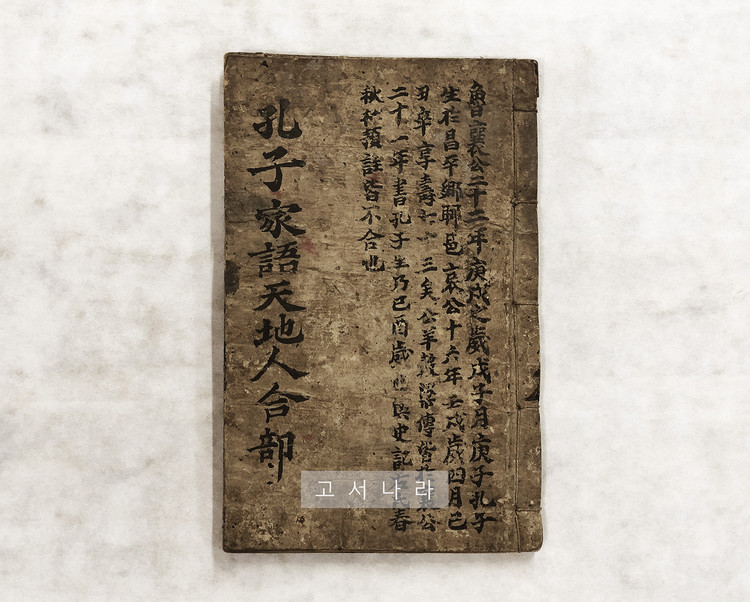 魯襄公二十二年庚戌之歲戊子月庚子孔子
生於昌平鄉郰邑哀公十六年壬戌歲四月己
丑卒享壽七十三矣公羊穀梁傳皆於襄公
二十一年書孔子生乃己酉歲也與史記春
秋杜預註皆不合也
孔子家語天地人合部
고서나라